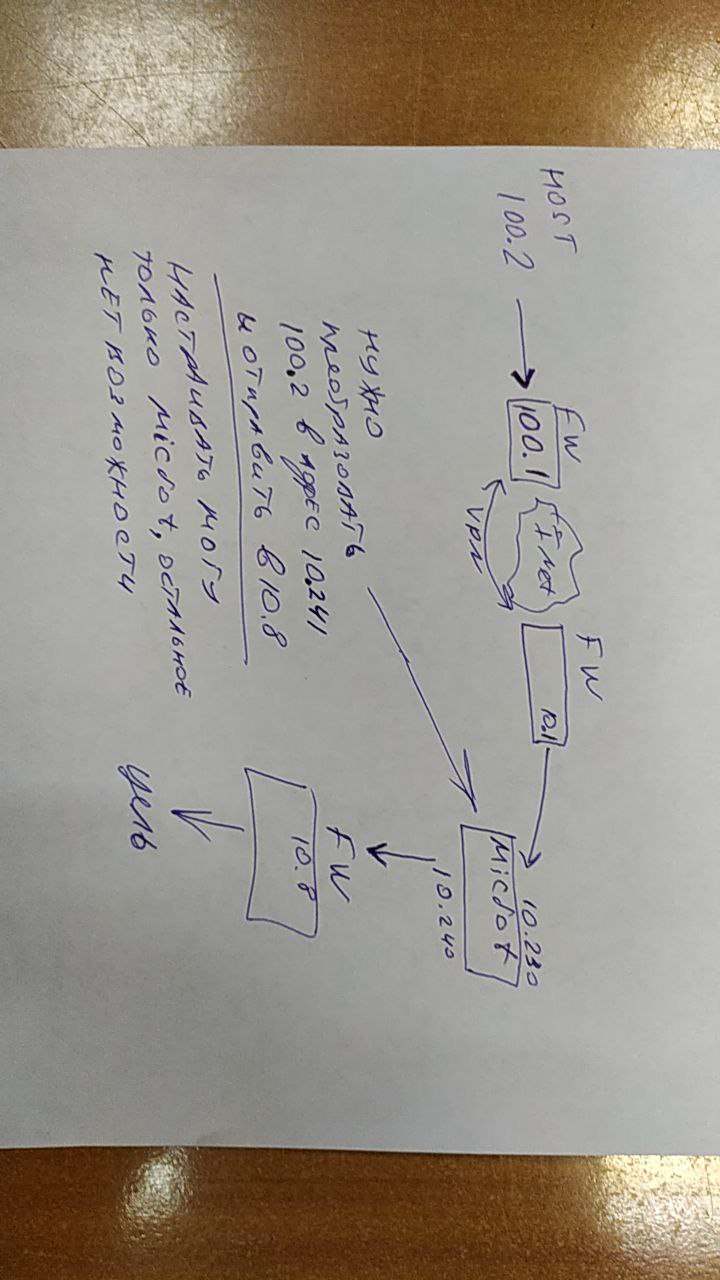 HOST
100.2
FW
100.1
Inet
VPN
FW
10.1
10.230
Microt
10.240
FW
10.8
цель
нужно
преобразовать
100.2 в адрес 10.241
и отправить в 10.8
настраивать могу
только microt, остальное
нет возможности